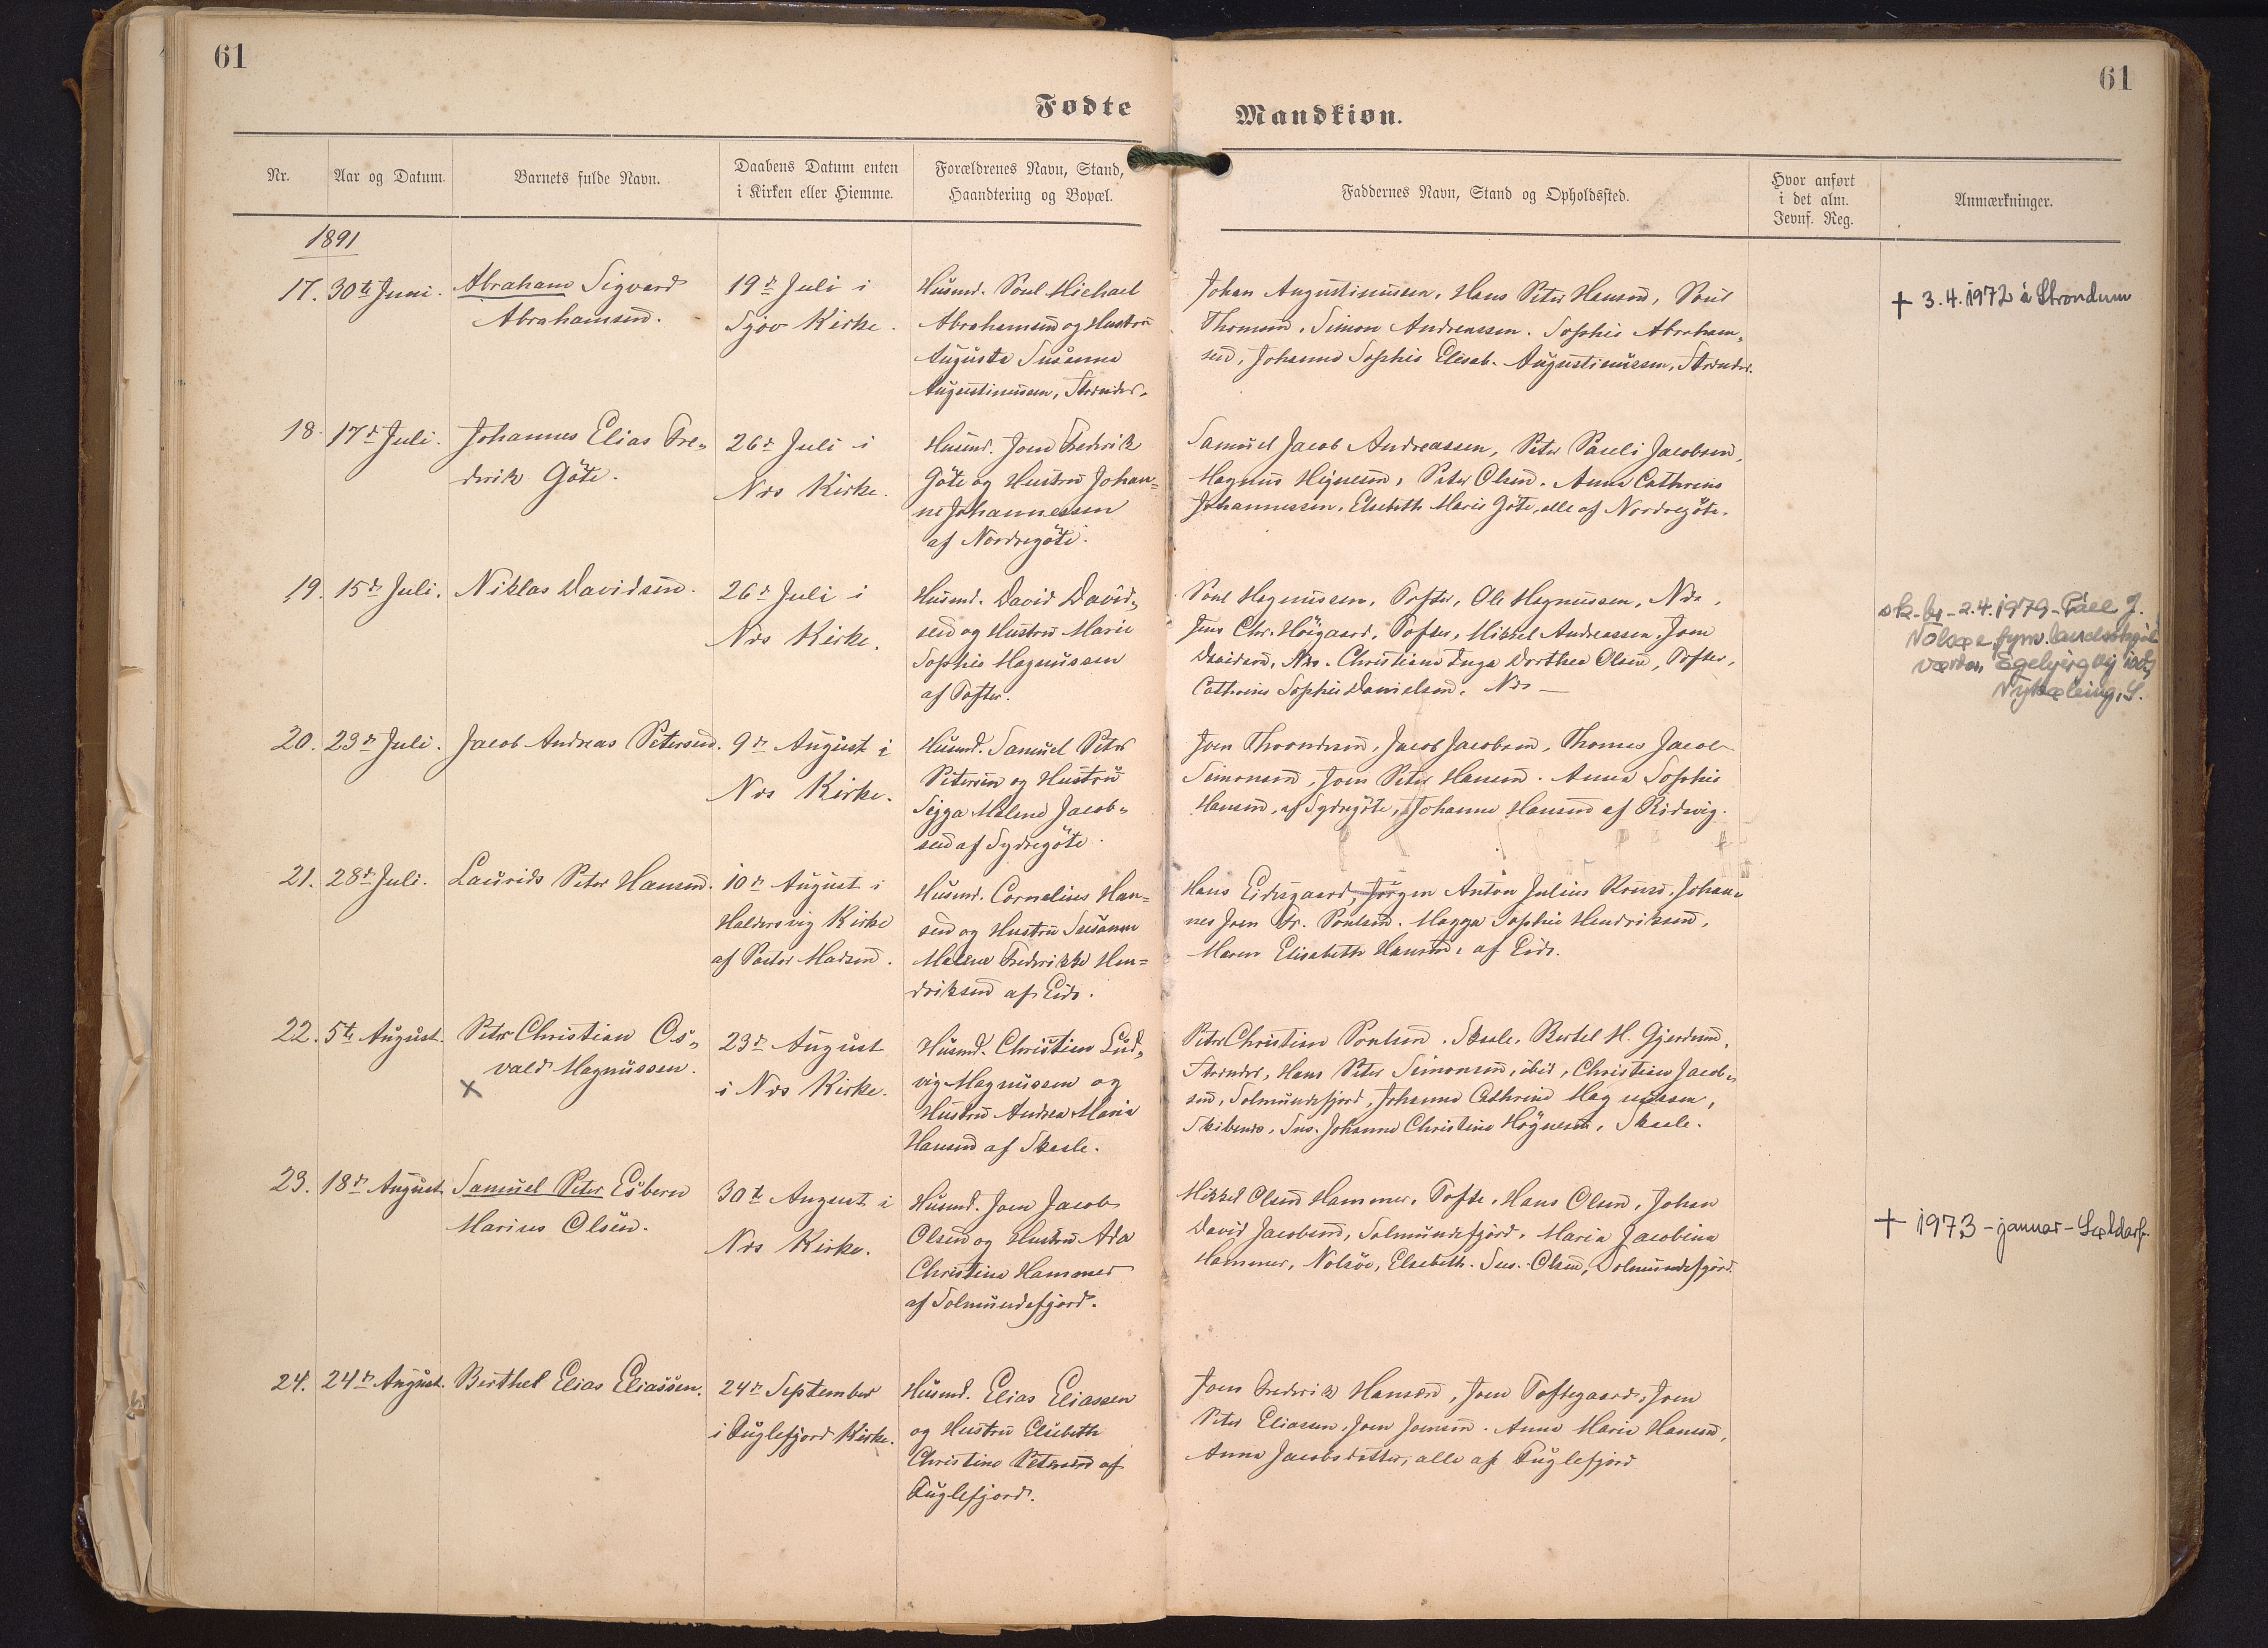 61
61
Fødte
Mandkiøn.
Nr.
Aar og Datum.
Barnets fulde Navn.
Daabens Datum enten
i Kirken eller Hiemme.
Forældrenes Navn, Stand,
Haandtering og Bopæl.
Faddernes Navn, Stand og Opholdssted.
Hvor anført
i det alm.
Jevnf. Reg.
Anmærkninger.
1891
17. 30te Juni.
Abraham Sigvard
Abrahamsen.
19de Juli i
Sjov Kirke.
Husmd. Poul Michael
Abrahamsen og Hustru
Augusta Susanne
Augustinussen, Strender.
Johan Augustinussen, Hans Peter Hansen, Poul
Thomsen, Simon Andreassen. Sophie Abraham„
sen, Johanne Sophie Elisab. Augustinussen, Strender.
† 3.4.1972 á Strondum
18. 17de Juli.
Johannes Elias Fre„
derik Göte.
26de Juli i
Nes Kirke.
Husmd. Joen Frederik
Göte og Hustru Johan=
ne Johannessen
af Nordregöte.
Samuel Jacob Andreassen, Peter Pauli Jacobsen,
Magnus Høgnesen, Peter Olsen. Anna Cathrine
Johannessen, Elsebeth Marie Göte, alle af Nordregöte.
19. 15de Juli.
Niklas Davidsen.
26de Juli i
Nes Kirke.
Husmd. David David„
sen og Hustru Marie
Sophie Magnussen
af Tofter.
Poul Magnussen, Tofter, Ole Magnussen, Nes,
Jens Chr. Höigaard, Tofter, Mikkel Andreassen, Joen
Davidsen, Nes. Christiane Inga Dorthea Olsen, Tofter,
Cathrine Sophie Danielsen, Nes —
sk. br. 2.4.1979 - Páll J.
Nolsøe, fyrv. landsskjala-
vørður, Egebjerg
Nykøbing, S.
20. 23de Juli.
Jacob Andreas Petersen.
9de August i
Nes Kirke.
Husmd. Samuel Peter
Petersen og Hustru
Sigga Malene Jacob„
sen af Sydregöte.
Joen Throndsen, Jacob Jacobsen, Thomas Jacob
Simonsen, Joen Peter Hansen. Anna Sophie
Hansen, af Sydregöte, Johanne Hansen af Ridevig.
21. 28de Juli.
Laurids Peter Hansen.
10de August i
Haldersvig Kirke
af Pastor Madsen.
Husmd. Cornelius Han=
sen og Hustru Susanne
Malene Frederikke Hen=
driksen af Eide.
Hans Eidesgaard, Jørgen Anton Julius Poulsen, Johan„
nes Joen Fr. Poulsen. Magga Sophie Hendriksen,
Maren Elisabeth Hansen, af Eide.
22. 5te August.
Peter Christian Os„
vald Magnussen.
x
23de August
i Nes Kirke.
Husmd. Christian Lud„
vig Magnussen og
Hustru Andrea Maria
Hansen af Skaale.
Peter Christian Poulsen, Skaale, Bertel M. Gjerdsen,
Strender, Hans Peter Simonsen, ibid, Christian Jacob„
sen, Solmundefjord, Johanne Cathrine Magnussen,
Skibenes, Sus. Johanne Christine Högnesen, Skaale.
23. 18de August
Samuel Peter Esbern
Marius Olsen.
30te August i
Nes Kirke.
Husmd. Joen Jacob
Olsen og Hustru Ada
Christine Hammer
af Solmundefjord.
Mikkel Olsen Hammer, Tofte, Hans Olsen, Johan
David Jacobsen, Solmundefjord. Maria Jacobina
Hammer, Nolsöe, Elsebeth Sus. Olsen, Solmundefjord.
† 1973 - januar - Sældarf.
24. 24de August.
Berthel Elias Eliassen.
24de September
i Fuglefjord Kirke.
Husmd. Elias Eliassen
og Hustru Elsebeth
Christine Petersen af
Fuglefjord.
Joen Frederik Hansen, Joen Toftegaard, Joen
Peter Eliassen, Joen Joensen. Anne Marie Hansen,
Anna Jacobsdatter, alle af Fuglefjord